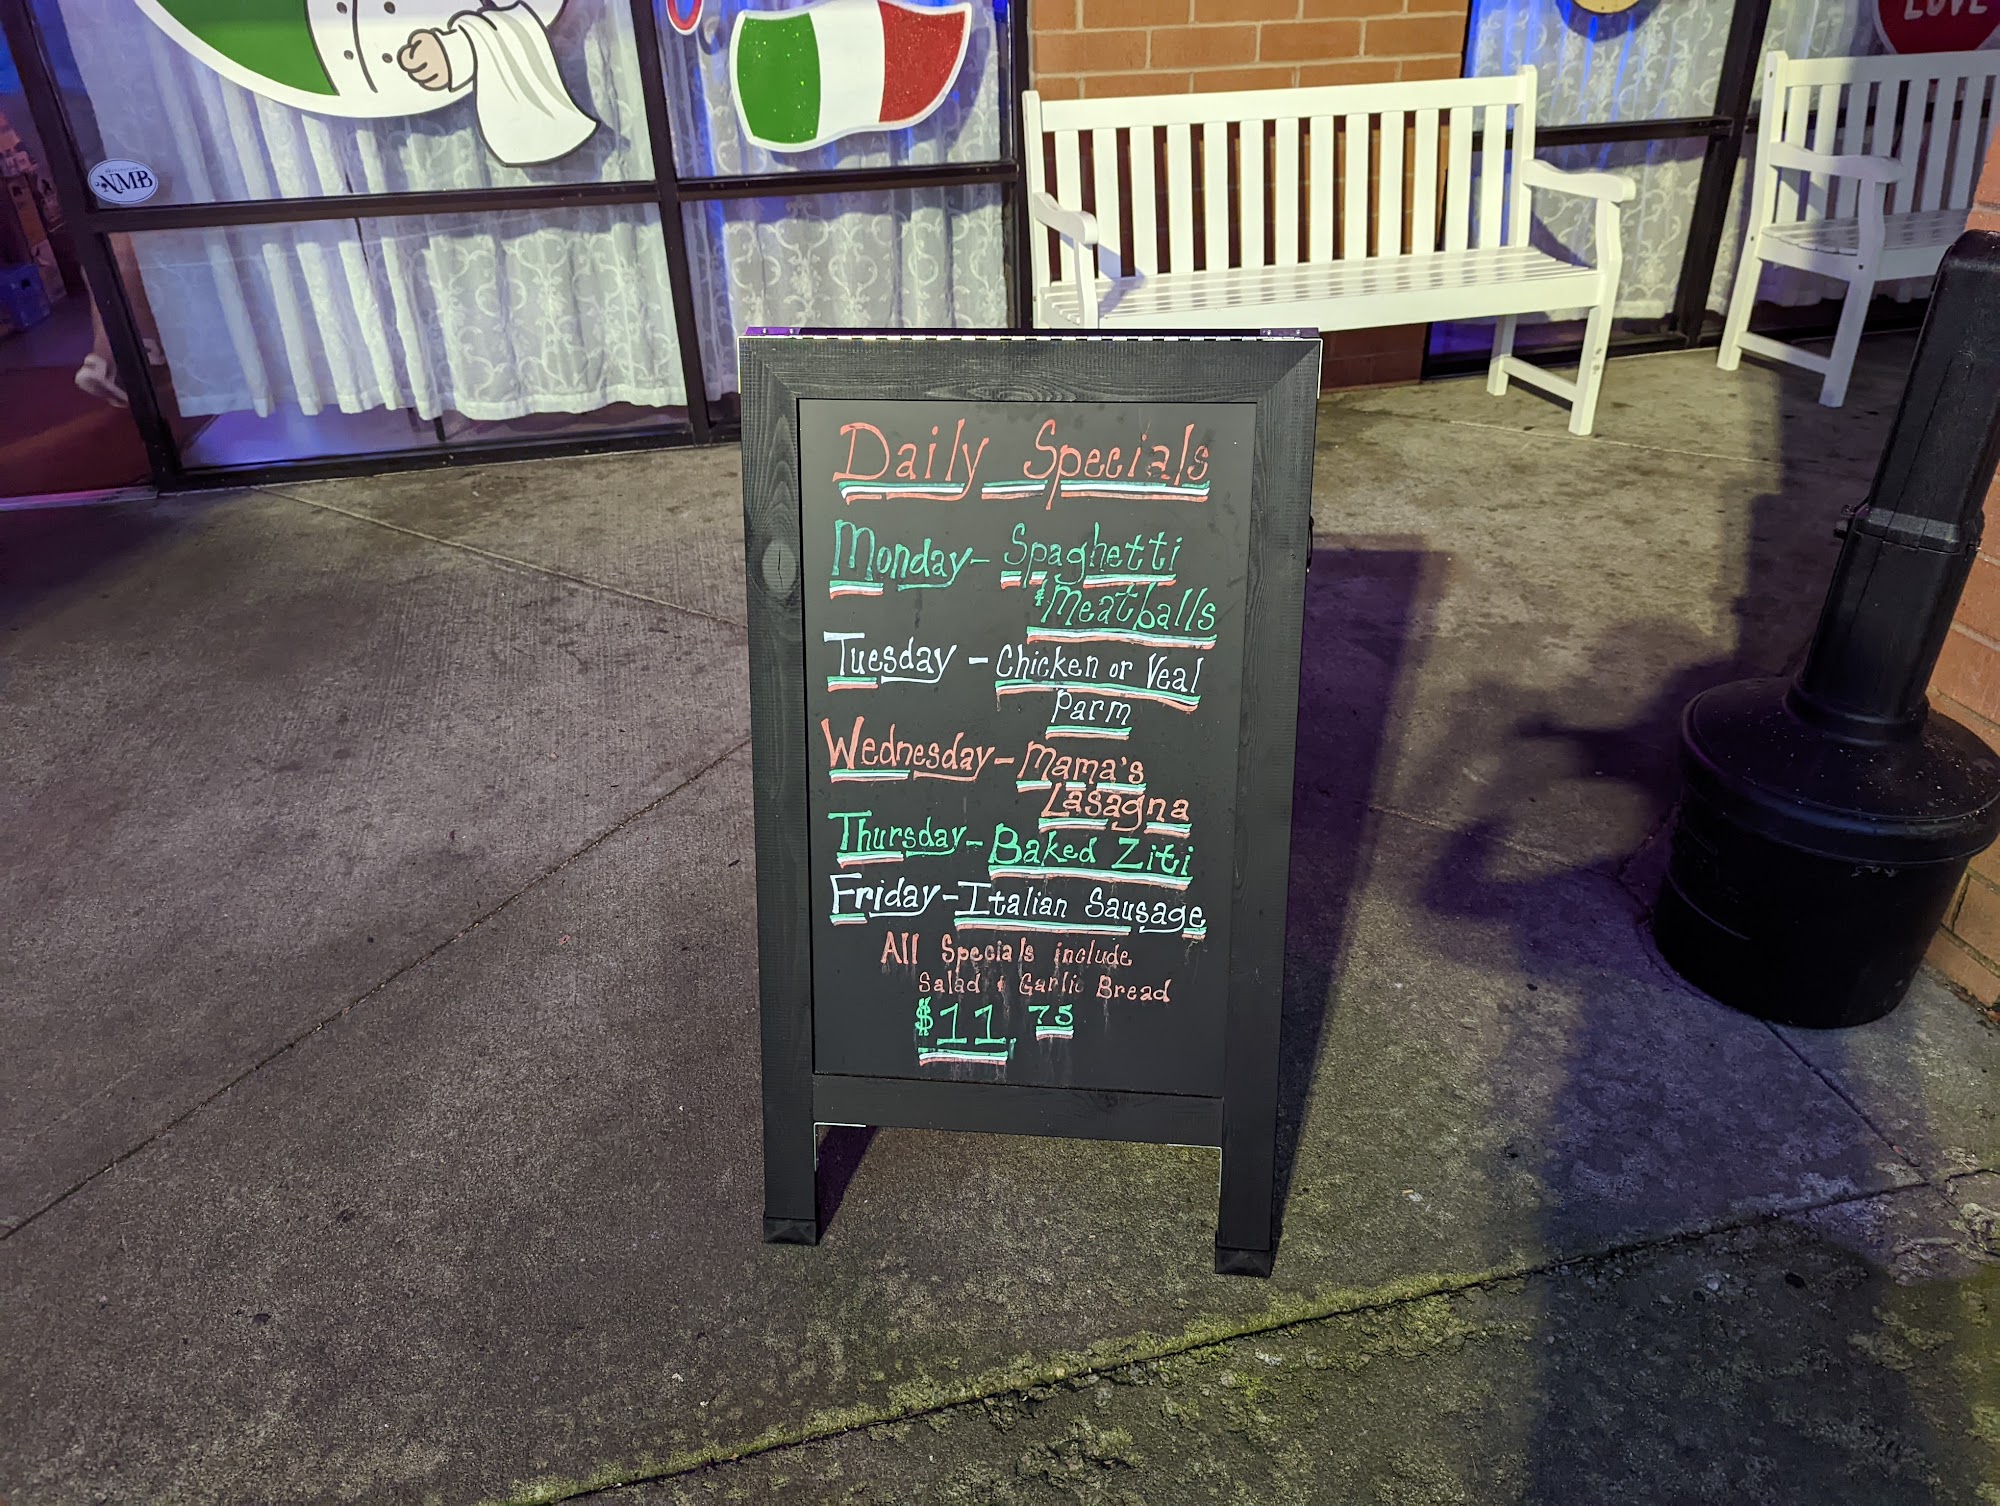 LOVE
NMB
Daily Specials
Monday - Spaghetti
& Meatballs
Tuesday - Chicken or Veal
Parm
Wednesday - Mama's
Lasagna
Thursday - Baked Ziti
Friday - Italian Sausage
All Specials include
Salad & Garlic Bread
$11.75